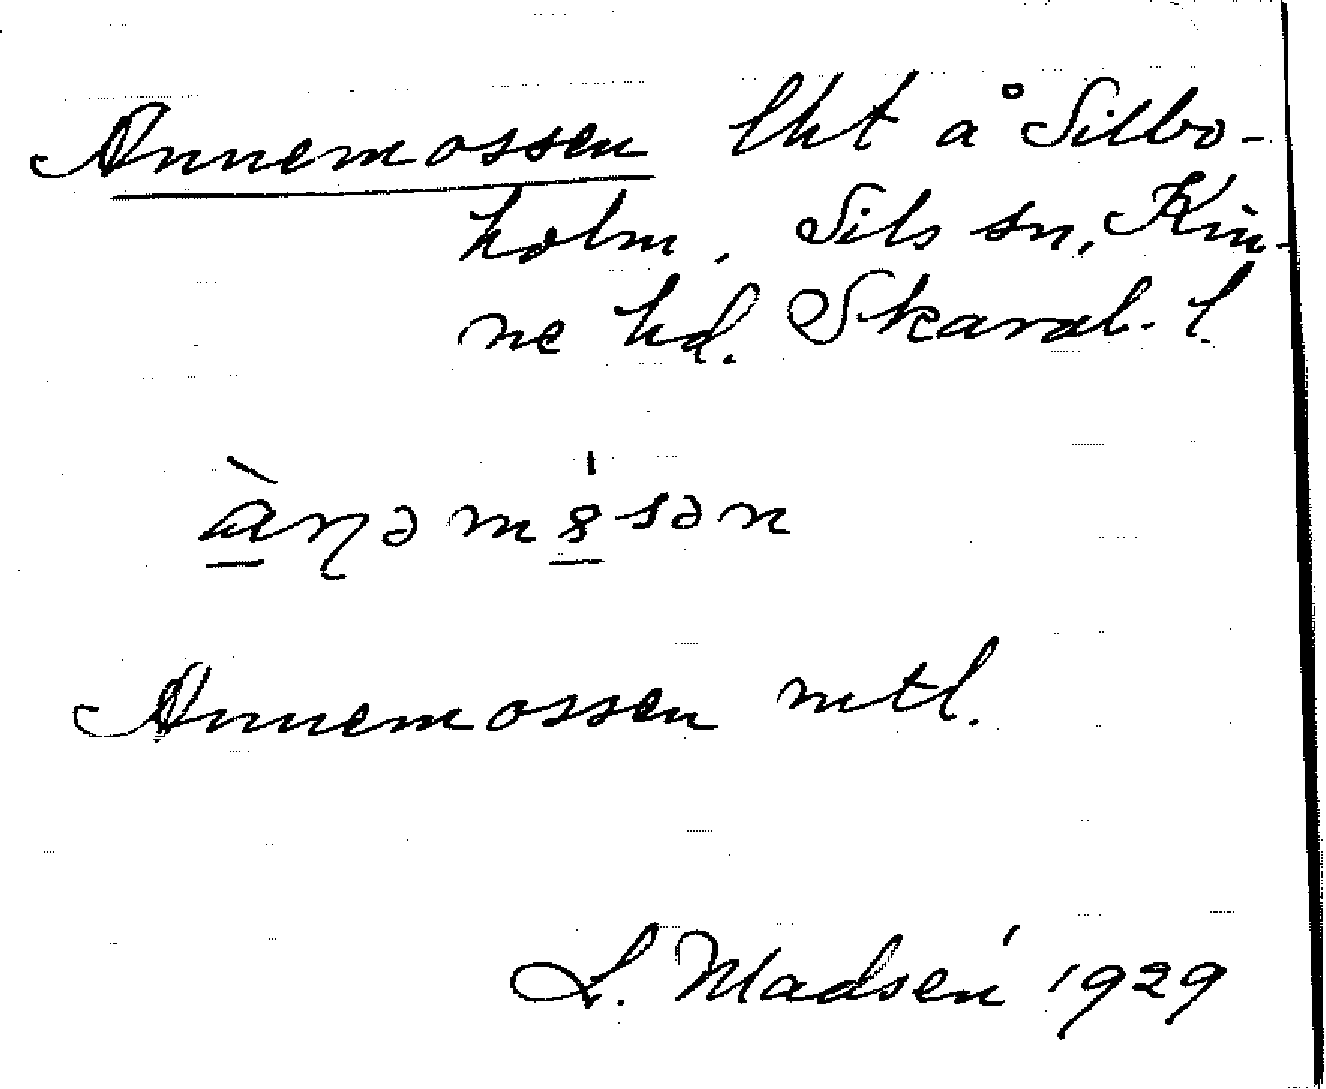 Annemossen lht å Silbo-
holm, Sils sn, Kin-
ne hd. Skarab. l.
àn̡əm8sən
Annemossen mtl.
L. Madsén 1929